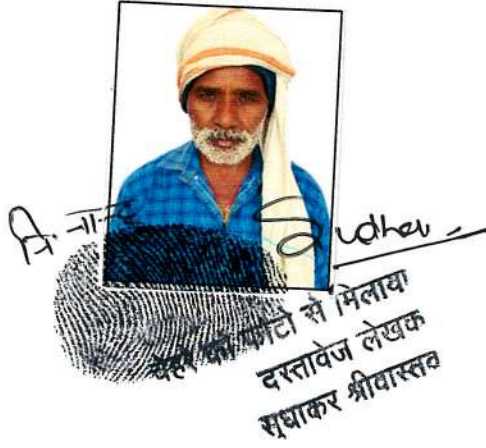 Sudhar
चेहरे को फोटो से मिलाया
दस्तावेज लेखक
सुधाकर श्रीवास्तव